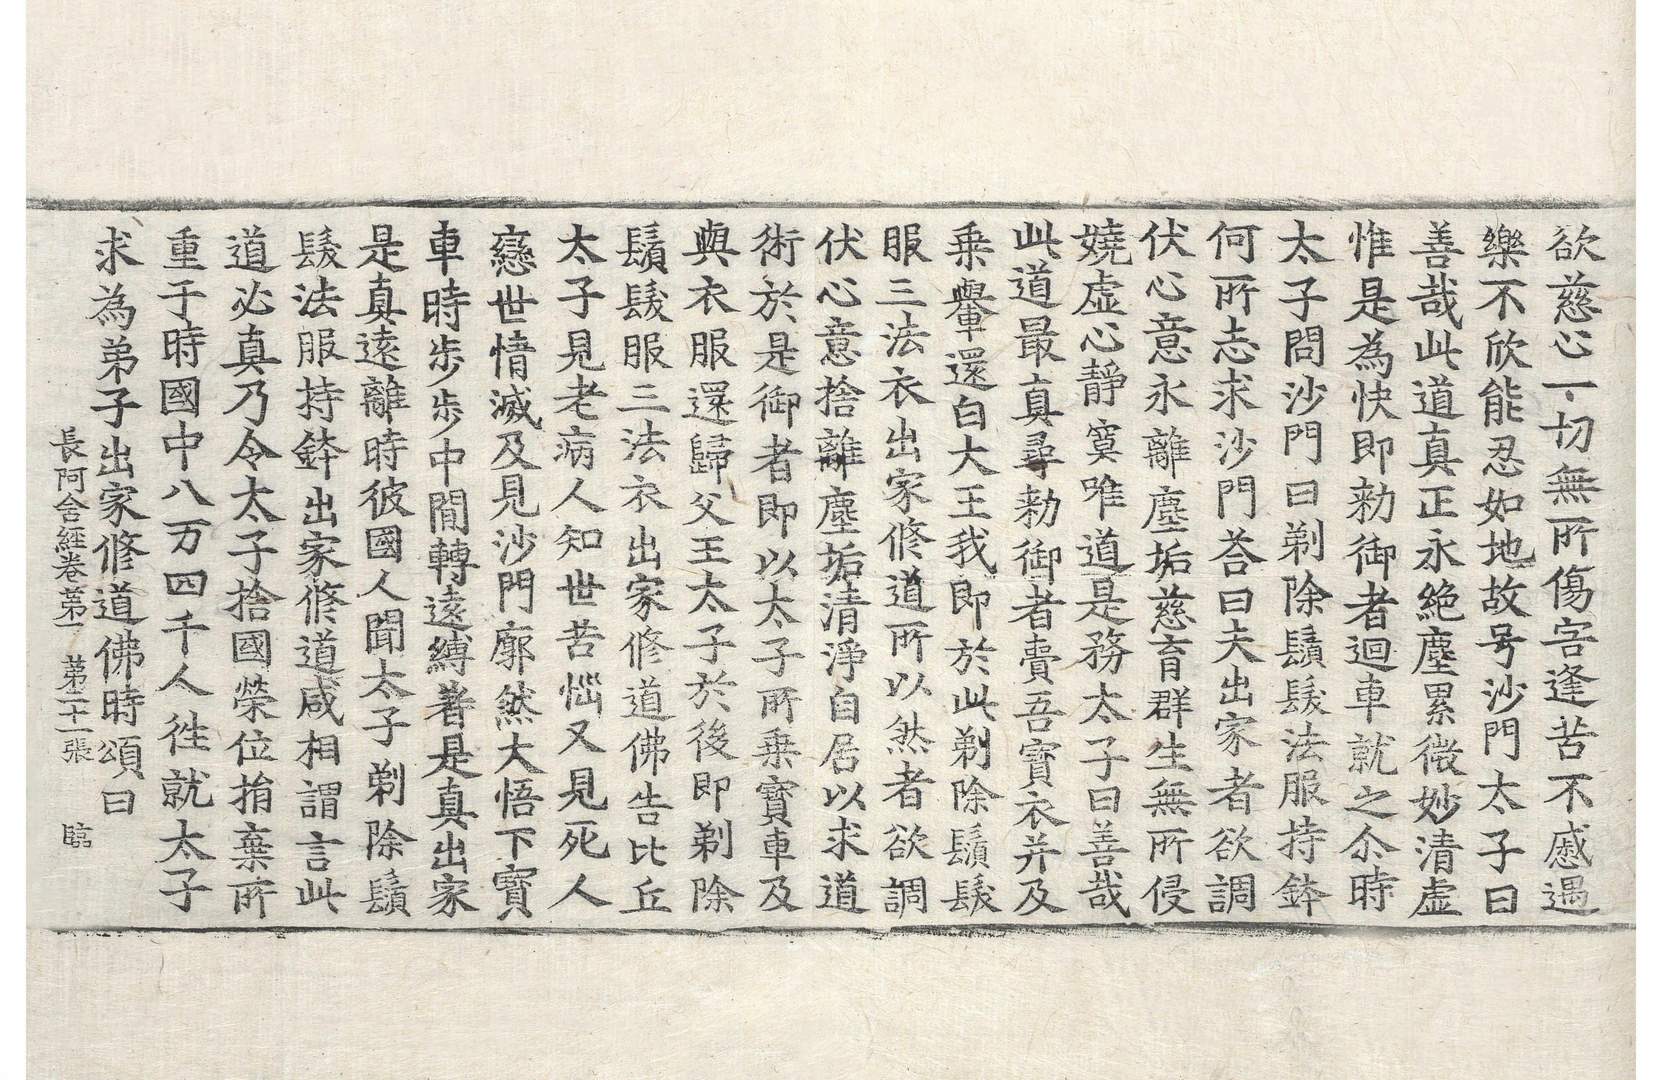 欲慈心一切無所傷害逢苦不慼遇
樂不欣能忍如地故号沙門太子曰
善哉此道真正永絕塵累微妙清虛
惟是為快即勑御者迴車就之尒時
太子問沙門曰剃除鬚髮法服持鉢
何所志求沙門荅曰夫出家者欲調
伏心意永離塵垢慈育群生無所侵
嬈虛心靜寞唯道是務太子曰善哉
此道最真尋勑御者賷吾寶衣并及
乗轝還白大王我即於此剃除鬚髮
服三法衣出家修道所以然者欲調
伏心意捨離塵垢清淨自居以求道
術於是御者即以太子所乗寶車及
與衣服還歸父王太子於後即剃除
鬚髮服三法衣出家修道佛告比丘
太子見老病人知世苦惱又見死人
戀世情滅及見沙門廓然大悟下寶
車時步步中間轉遠縛著是真出家
是真遠離時彼國人聞太子剃除鬚
髮法服持鉢出家修道咸相謂言此
道必真乃令太子捨國榮位捐棄所
重于時國中八万四千人徃就太子
求為弟子出家修道佛時頌曰
長阿含經卷第一　第二十一張　臨